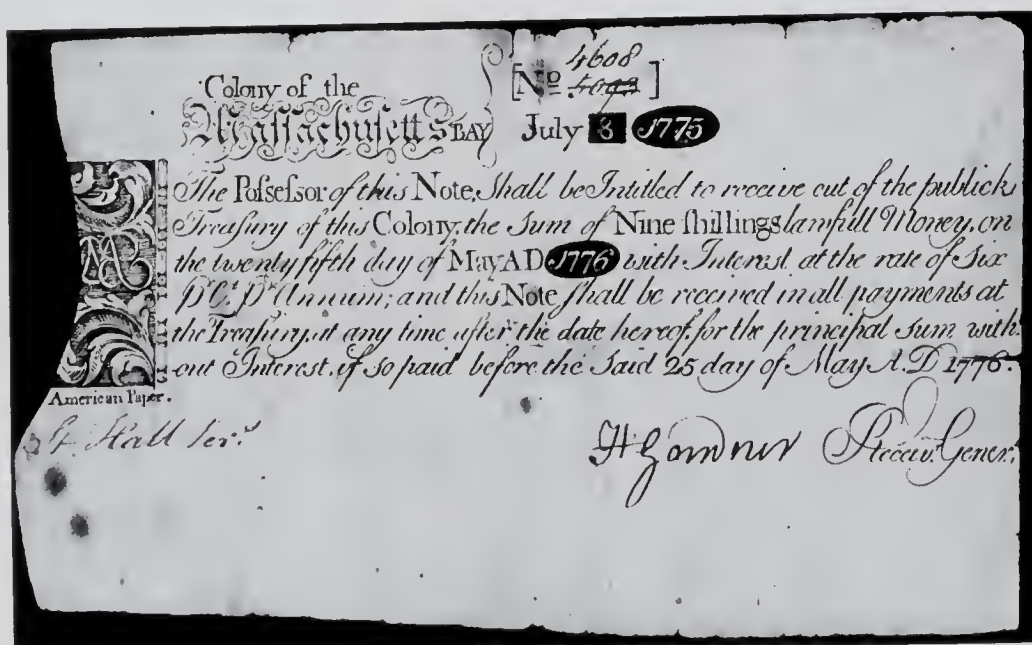 4608
Colony of the [No 4093]
Massachusetts BAY July 8 1775
The Poſseſsor of this Note, Shall be Intitled to receive out of the publick
Treaſury of this Colony, the Sum of Nine ſhillings lawfull Money, on
the twenty fifth day of May A D 1776 with Interest at the rate of Six
P Ct. P Annum; and this Note ſhall be received in all payments at
the Treaſury, at any time after the date hereof, for the principal Sum with
out Interest, if so paid before the Said 25 day of May A. D 1776.
MB
American Paper.
Hall
H Gardner Receivr. Gener.